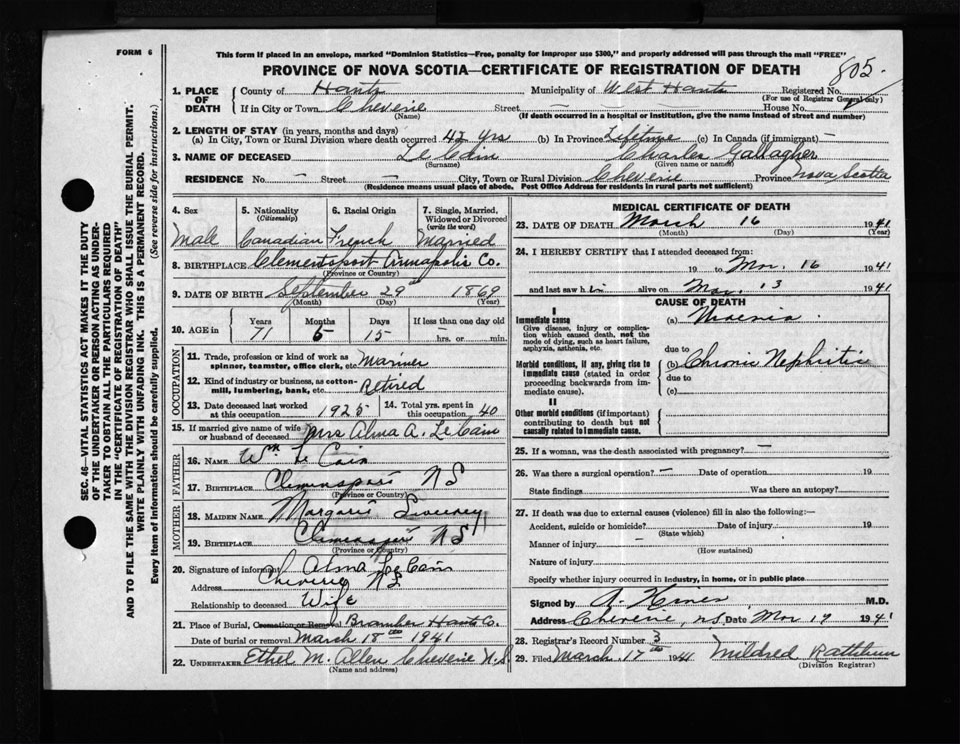 FORM 6
This form if placed in an envelope, marked "Dominion Statistics—Free, penalty for improper use $300," and properly addressed will pass through the mail "FREE"
PROVINCE OF NOVA SCOTIA—CERTIFICATE OF REGISTRATION OF DEATH
805
1. PLACE OF DEATH
County of Hants Municipality of West Hants Registered No.
(For use of Registrar General only)
If in City or Town Cheverie Street — House No. —
(Name) (If death occurred in a hospital or institution, give the name instead of street and number)
2. LENGTH OF STAY (in years, months and days)
(a) In City, Town or Rural Division where death occurred 42 yrs (b) In Province Lifetime (c) In Canada (if immigrant) —
3. NAME OF DECEASED Le Cain Charles Gallagher
(Surname) (Given name or names)
RESIDENCE No. — Street — City, Town or Rural Division Cheverie Province Nova Scotia
(Residence means usual place of abode. Post Office Address for residents in rural parts not sufficient)
4. Sex Male
5. Nationality (Citizenship) Canadian
6. Racial Origin French
7. Single, Married, Widowed or Divorced (write the word) Married
8. BIRTHPLACE Clementsport Annapolis Co.
(Province or Country)
9. DATE OF BIRTH September 29th 1869
(Month) (Day) (Year)
10. AGE in Years Months Days If less than one day old
71 5 15 hrs. or min.
OCCUPATION
11. Trade, profession or kind of work as spinner, teamster, office clerk, etc. Mariner
12. Kind of industry or business, as cotton-mill, lumbering, bank, etc. Retired
13. Date deceased last worked at this occupation 1925
14. Total yrs. spent in this occupation 40
15. If married give name of wife or husband of deceased Mrs Alma A. Le Cain
FATHER
16. NAME Wm Le Cain
17. BIRTHPLACE Clemensport N S
(Province or Country)
MOTHER
18. MAIDEN NAME Margaret Sweeney
19. BIRTHPLACE Clemensport N S
(Province or Country)
20. Signature of informant Alma Le Cain
Address Cheverie N S
Relationship to deceased Wife
21. Place of Burial, Cremation or Removal Bramber Hants Co.
Date of burial or removal March 18th 1941
22. UNDERTAKER Ethel M. Allen Cheverie N.S
(Name and address)
MEDICAL CERTIFICATE OF DEATH
23. DATE OF DEATH March 16 1941
(Month) (Day) (Year)
24. I HEREBY CERTIFY that I attended deceased from:
19 to Mar. 16 1941
and last saw h im alive on Mar. 13 1941
CAUSE OF DEATH
I
Immediate cause
Give disease, injury or complication which caused death, not the mode of dying, such as heart failure, asphyxia, asthenia, etc.
(a) Uraemia
due to
Morbid conditions, if any, giving rise to immediate cause (stated in order proceeding backwards from immediate cause).
(b) Chronic Nephritis
due to
(c)
II
Other morbid conditions (if important) contributing to death but not causally related to immediate cause.
25. If a woman, was the death associated with pregnancy? —
26. Was there a surgical operation? — Date of operation 19
State findings Was there an autopsy?
27. If death was due to external causes (violence) fill in also the following:—
Accident, suicide or homicide? Date of injury 19
(State which)
Manner of injury
(How sustained)
Nature of injury
Specify whether injury occurred in industry, in home, or in public place
Signed by M.D.
Address Cheverie, N.S. Date Mar 17 1941
28. Registrar's Record Number 3
29. Filed March 17th 1941 Mildred Rathbun
(Division Registrar)
SEC. 46—VITAL STATISTICS ACT MAKES IT THE DUTY
OF THE UNDERTAKER OR PERSON ACTING AS UNDER-
TAKER TO OBTAIN ALL THE PARTICULARS REQUIRED
IN THE "CERTIFICATE OF REGISTRATION OF DEATH"
AND TO FILE THE SAME WITH THE DIVISION REGISTRAR WHO SHALL ISSUE THE BURIAL PERMIT.
WRITE PLAINLY WITH UNFADING INK. THIS IS A PERMANENT RECORD.
Every item of information should be carefully supplied. (See reverse side for instructions.)